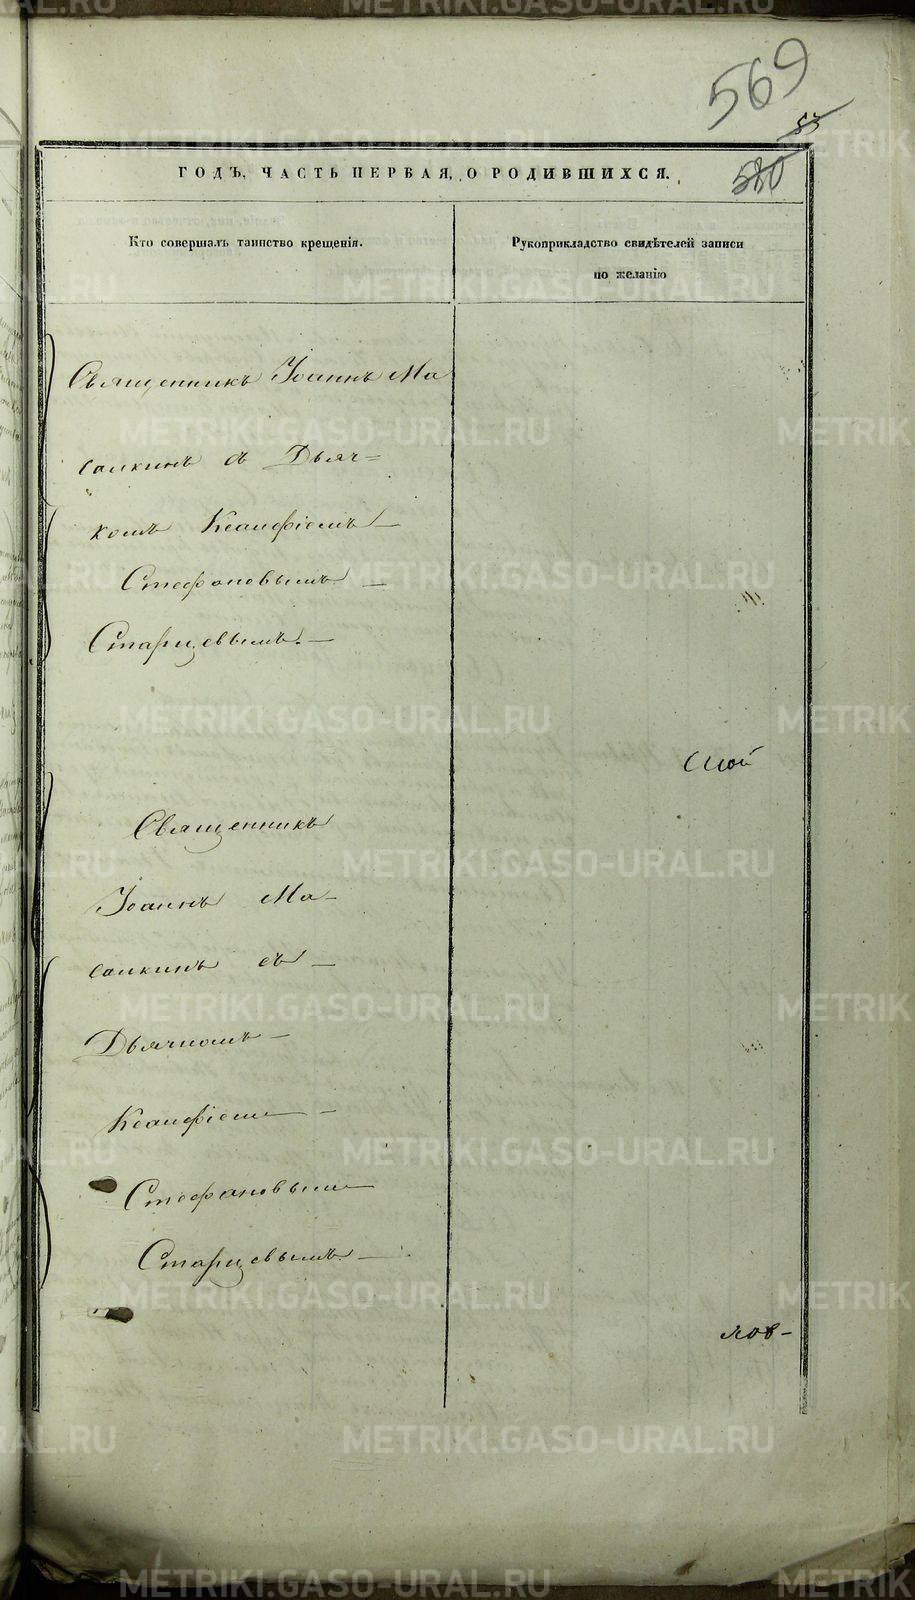 569
53
580
ГОДЪ, ЧАСТЬ ПЕРВАЯ, О РОДИВШИХСЯ.
Кто совершалъ таинство крещенія.
Рукоприкладство свидѣтелей записи
по желанію
Священникъ Іоаннъ Ма
салкинъ съ Дьяч=
комъ Ксанфіемъ
Стефановымъ
Старцевымъ.
Священникъ
Іоаннъ Ма-
салкинъ съ
Дьячкомъ
Ксанфіем
Стефановым
Старцевымъ
лов-
METRIKI.GASO-URAL.RU